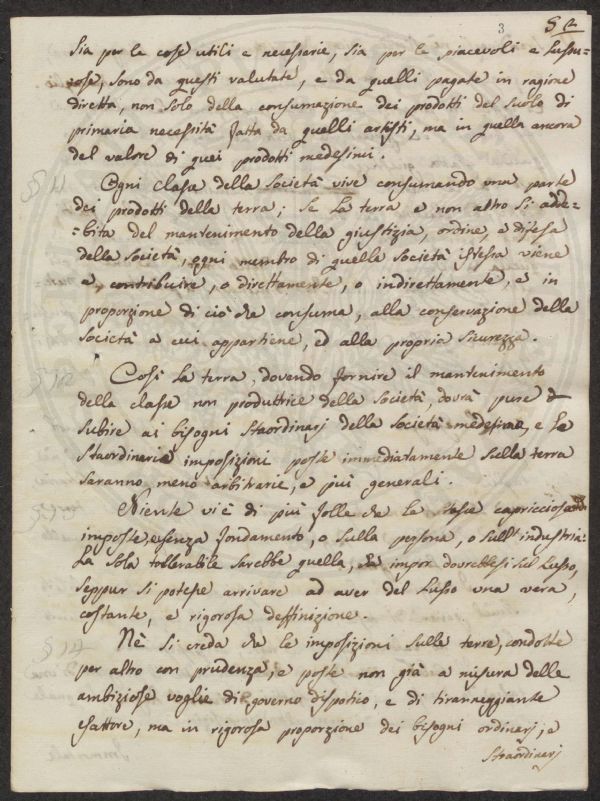 3
sia per le cose utili e necessarie, sia per le piacevoli e lusou-
=ose, sono da questi valutate, e da quelli pagate in ragione
diretta, non solo della consumazione dei prodotti del suolo di
primaria necessità fatta da quelli artisti, ma in quella ancora
del valore di quei prodotti medesimi.
§ 11
Ogni classe della Società vive consumando una parte
dei prodotti della terra; se la terra e non altro si adde-
=bita del mantenimento della giustizia, ordine, e difesa
della Società, ogni membro di quella Società istessa viene
a contribuire, o direttamente, o indirettamente, e in
proporzione di ciò che consuma, alla conservazione della
Società a cui appartiene, ed alla propria sicurezza.
§ 12
Così la terra, dovendo fornire il mantenimento
della classe non produttrice della Società, dovrà pure
subire ai bisogni straordinarj della Società medesima, e le
straordinarie imposizioni poste immediatamente sulla terra
saranno meno arbitrarie, e più generali.
§ 13
Niente vi è di più folle che le tasse capricciosamente
imposte, e senza fondamento, o sulla persona, o sull'industria.
La sola tollerabile sarebbe quella, che impor dovrebbesi sul lusso,
seppur si potesse arrivare ad aver del lusso una vera,
costante, e rigorosa deffinizione.
§ 14
Nè si creda che le imposizioni sulle terre, condotte
per altro con prudenza, e poste non già a misura delle
ambiziose voglie di governo dispotico, e di tiranneggiante
esattore, ma in rigorosa proporzione dei bisogni ordinarj, e
straordinarj